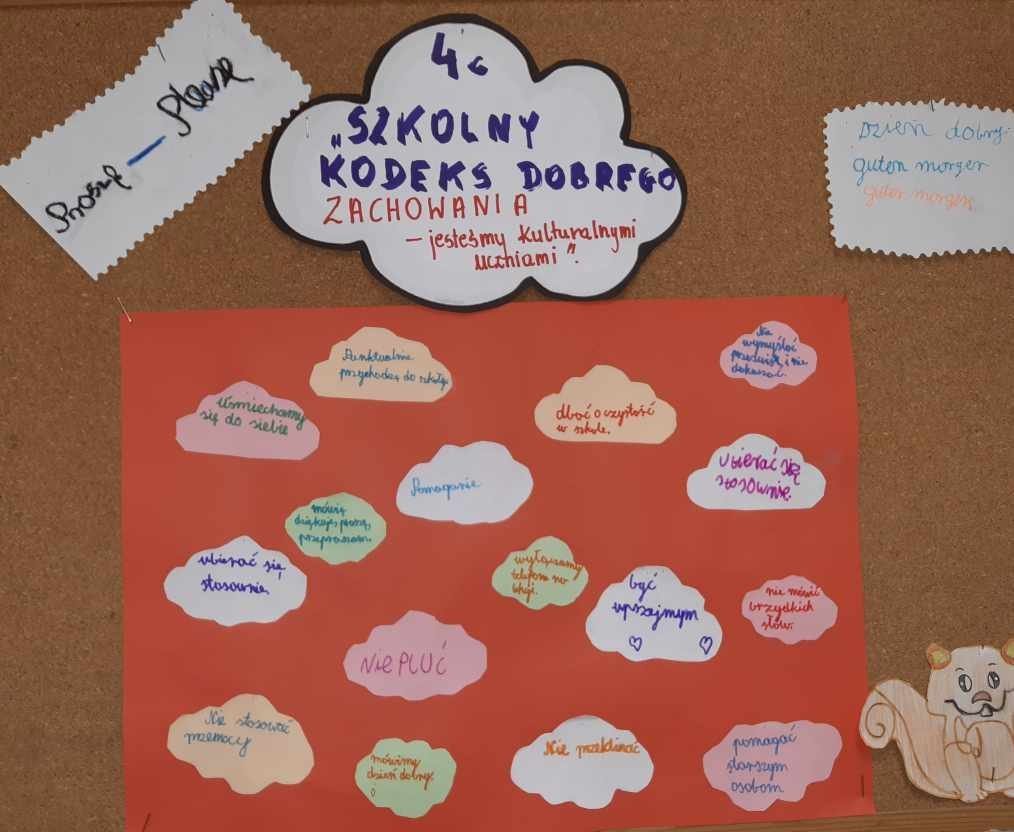 Proszę – Please
4c
„SZKOLNY
KODEKS DOBREGO
ZACHOWANIA
– jesteśmy kulturalnymi
uczniami".
Dzień dobry
guten morgen
guten morgen
Punktualnie
przychodzą do szkoły.
Nie
wymyślać
przezwisk, i nie
dokuczać.
Uśmiechamy
się do siebie
dbać o czystość
w szkole.
Pomaganie
Ubierać się
stosownie.
mówię
dziękuję, proszę,
przepraszam.
ubierać się
stosownie.
wyłączamy
telefony na
lekcji.
być
uprzejmym
nie mówić
brzydkich
słów.
NIE PLUĆ
Nie stosować
przemocy
mówimy
dzień dobry.
Nie przeklinać
pomagać
starszym
osobom